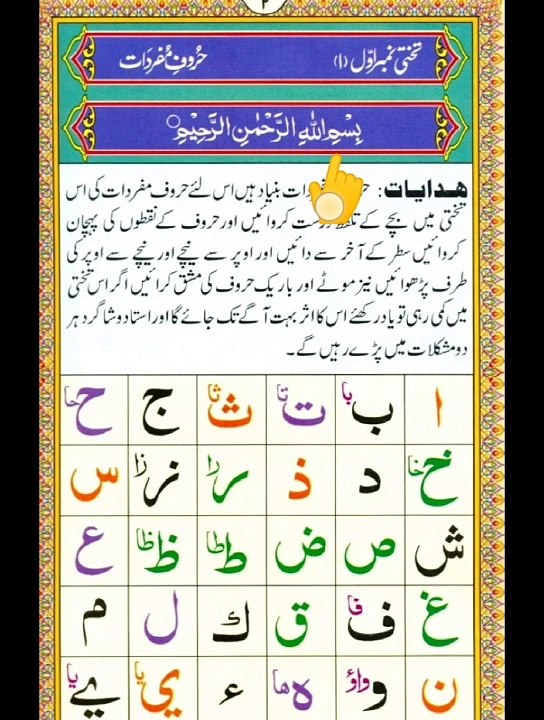 ۲
تختی نمبر اوّل (۱) حُروفِ مُفرَدَات
بِسْمِ اللهِ الرَّحْمٰنِ الرَّحِيْمِ
هدایات: دات بنیاد ہیں اس لئے حروف مفردات کی اس
تختی میں بچے کے تلفظ درست کروائیں اور حروف کے نقطوں کی پہچان
کروائیں سطر کے آخر سے دائیں اور اوپر سے نیچے اور نیچے سے اوپر کی
طرف پڑھوائیں نیز موٹے اور باریک حروف کی مشق کرائیں اگر اس تختی
میں کمی رہی تو یاد رکھئے اس کا اثر بہت آگے تک جائے گا اور استاد و شاگرد ہر
دو مشکلات میں پڑے رہیں گے۔
ا ب با ت تا ث ثا ج ح حا
خ خا د ذ ر را ز زا س
ش ص ض ط طا ظ ظا ع
غ ف فا ق ك ل م
ن و واؤ ه ها ء ي يا ے يا